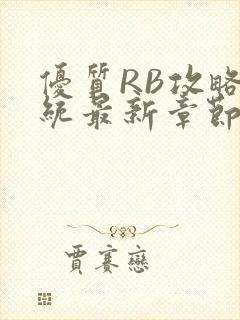 優質RB攻略
統最新章節
賈賽戀